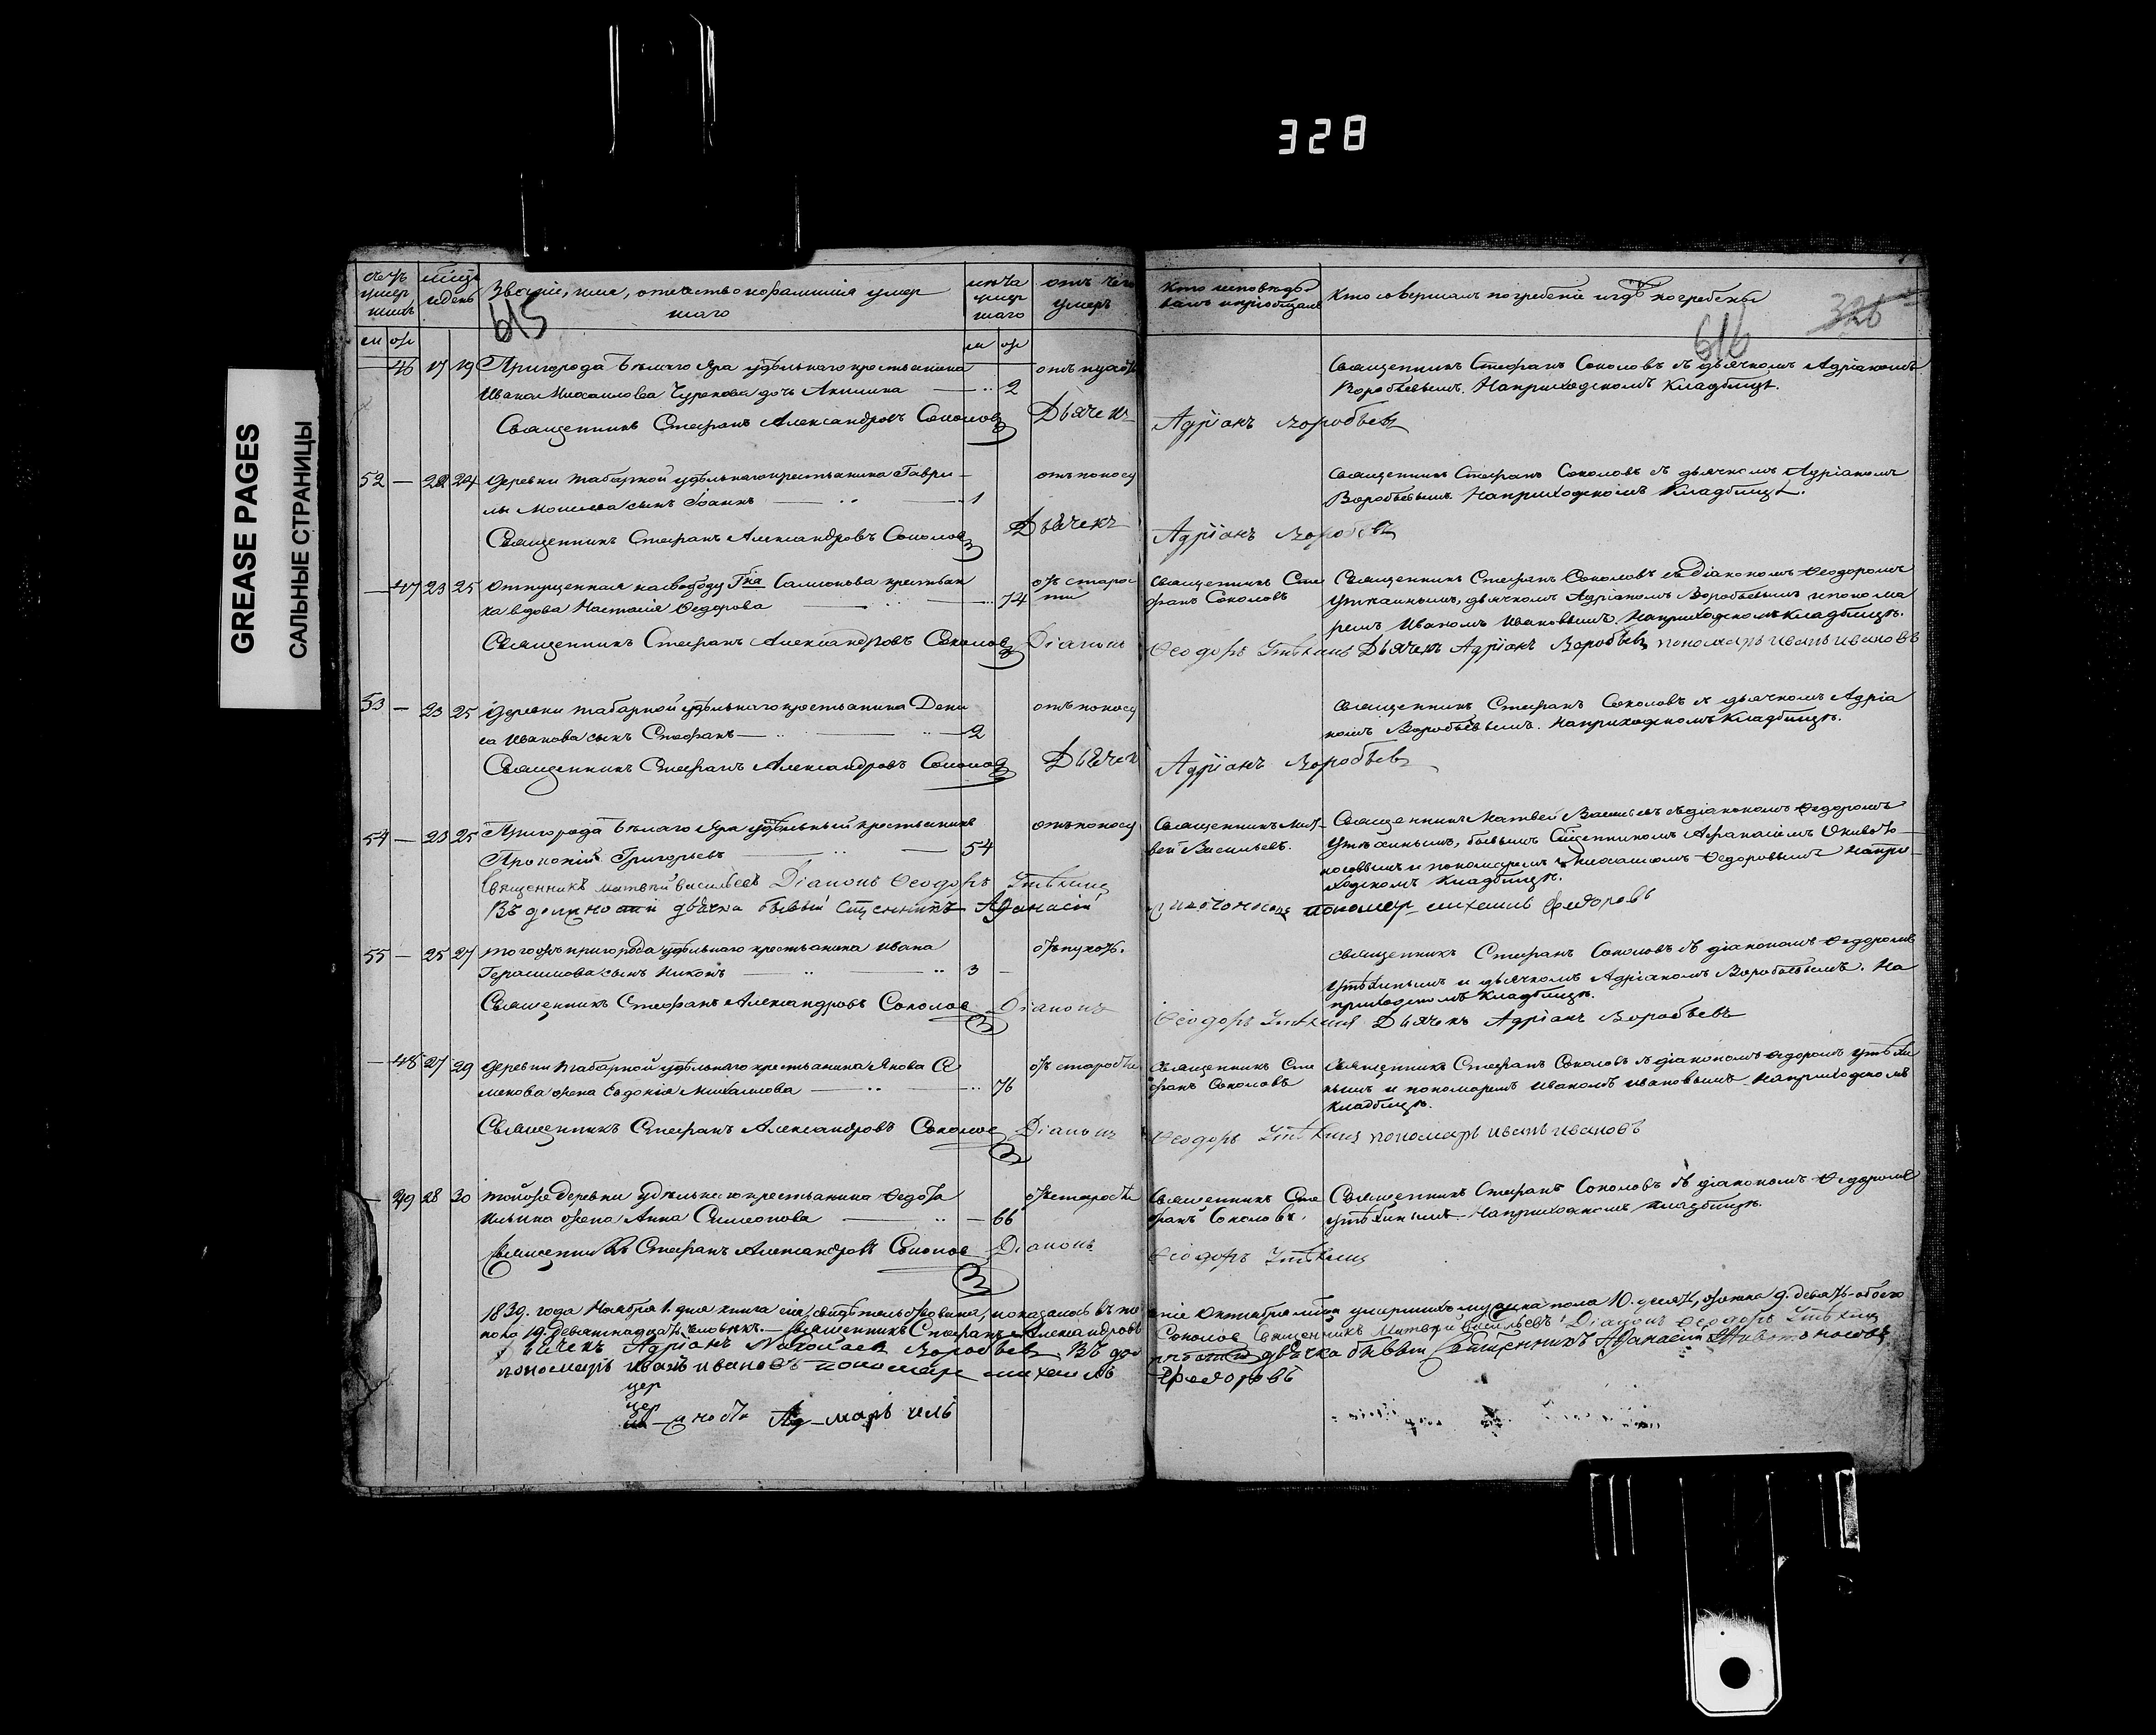 328
GREASE PAGES
САЛЬНЫЕ СТРАНИЦЫ
Званіе, имя, отечество и фамилія умер
шаго
отъ чего
умеръ
615
м ж
м ж
46 17 19 Пригорода Бѣлаго Яра удѣльнаго крестьянина
Ивана Михаилова Чуракова дочь Акилина 2
Священникъ Стефанъ Александровъ Соколовъ Дьячекъ
52 — 22 24 Деревни Табарной удѣльнаго крестьянина Гаври- отъ поносу
лы Моисеева сынъ Іоаннъ 1
Священникъ Стефанъ Александровъ Соколовъ Дьячекъ
— 47 23 25 Отпущенная на свободу Гжа Салионова крестьян отъ старос
ка вдова Настасія Ѳедорова 74 ти
Священникъ Стефанъ Александровъ Соколовъ Діаконъ
53 — 23 25 Деревни Табарной удѣльнаго крестьянина Дени отъ поносу
са Иванова сынъ Стефанъ 2
Священникъ Стефанъ Александровъ Соколовъ Дьячекъ
54 — 23 25 Пригорода Бѣлаго Яра удѣльный крестьянинъ отъ поносу
Прокопій Григорьевъ 54
Священникъ Матвей Васильевъ Діаконъ Ѳеодоръ Утѣхинъ
Въ должности дьячка бывый Сщенникъ Афанасій
55 — 25 27 того жъ пригорода удѣльнаго крестьянина Ивана
Герасимова сынъ Никонъ 3
Священникъ Стефанъ Александровъ Соколовъ Діаконъ
— 48 27 29 Деревни Табарной удѣльнаго крестьянина Якова Се отъ старости
менова жена Евдокія Михаилова 76
Священникъ Стефанъ Александровъ Соколовъ Діаконъ
— 49 28 30 той же деревни удѣльнаго крестьянина Ѳедота отъ старости
Ильина жена Анна Симеонова 66
Священникъ Стефанъ Александровъ Соколовъ Діаконъ
1839. года Ноября 1. дня книга сія свидѣтельствована, показалось въ те
пола 19. девятнадцать человѣкъ. — Священникъ Стефанъ Александровъ
Дьячекъ Адріанъ Николаевъ Воробьевъ. Въ дол
пономарь Иванъ Ивановъ пономарь михаилъ
Кто исповѣды-
валъ и пріобщалъ
Кто совершалъ погребеніе и гдѣ погребены
326
616
Священникъ Стефанъ Соколовъ съ дьячкомъ Адріаномъ
Воробьевымъ. На приходскомъ кладбищѣ.
Адріанъ Воробьевъ
Священникъ Стефанъ Соколовъ съ дьячкомъ Адріаномъ
Воробьевымъ. На приходскомъ кладбищѣ.
Адріанъ Воробьевъ
Священникъ Сте Священникъ Стефанъ Соколовъ съ діакономъ Ѳеодоромъ
фанъ Соколовъ Утѣхинымъ, дьячкомъ Адріаномъ Воробьевымъ и понома
ремъ Иваномъ Ивановымъ. На приходскомъ кладбищѣ.
Ѳеодоръ Утѣхинъ Дьячекъ Адріанъ Воробьевъ пономарь Иванъ Ивановъ
Священникъ Стефанъ Соколовъ съ дьячкомъ Адріа
номъ Воробьевымъ. На приходскомъ кладбищѣ.
Адріанъ Воробьевъ
Священникъ Мат- Священникъ Матвей Васильевъ съ діакономъ Ѳедоромъ
вей Васильевъ. Утѣхинымъ, бывымъ Сщенникомъ Афанасіемъ Живото-
носовымъ и пономаремъ Михаиломъ Ѳедоровымъ На при-
ходскомъ кладбищѣ.
Животоносовъ пономарь михаилъ федоровъ
Священникъ Стефанъ Соколовъ съ діакономъ Ѳедоромъ
Утѣхинымъ и дьячкомъ Адріаномъ Воробьевымъ. На
приходскомъ кладбищѣ.
Ѳеодоръ Утѣхинъ Дьячекъ Адріанъ Воробьевъ
Священникъ Сте Священникъ Стефанъ Соколовъ съ діакономъ Ѳедоромъ Утѣхи
фанъ Соколовъ нымъ и пономаремъ Иваномъ Ивановымъ На приходскомъ
кладбищѣ.
Ѳеодоръ Утѣхинъ пономарь Иванъ Ивановъ
Священникъ Сте Священникъ Стефанъ Соколовъ съ діакономъ Ѳедоромъ
фанъ Соколовъ. Утѣхинымъ. На приходскомъ кладбищѣ.
Ѳеодоръ Утѣхинъ
ченіе Октября умершихъ мужеска пола 10. десять, женска 9. девять обоего
Соколовъ Священникъ Матвей Васильевъ Діаконъ Ѳеодоръ Утѣхинъ
жности дьячка бывый Сщенникъ Афанасій Животоносовъ
федоровъ